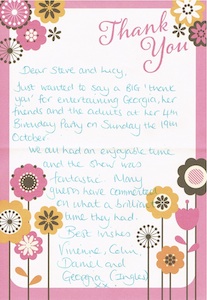 Thank
You
Dear Steve and Lucy,
Just wanted to say a BIG 'thank
you' for entertaining Georgia, her
friends and the adults at her 4th
Birthday Party on Sunday the 19th
October.
We all had an enjoyable time
and the show was
fantastic. Many
guests have commented
on what a brilliant
time they had.
Best wishes
Vivienne, Colin,
Daniel and
Georgia (Ingles)
xx